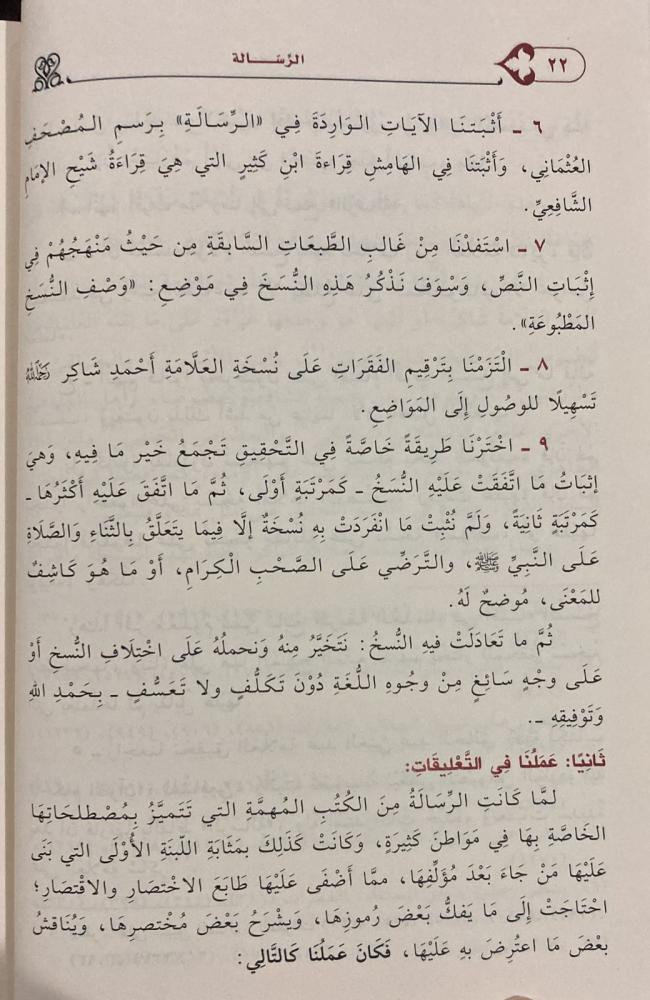 ٢٢
الرِّسَـــالة
٦ ـ أَثْبَتنَا الآيَاتِ الوَارِدَةَ فِي «الرِّسَالَةِ» بِرَسمِ المُصْحَفِ
العُثْمَانِي، وَأَثْبَتنَا فِي الهَامِشِ قِرَاءةَ ابْنِ كَثِيرٍ التي هِيَ قِرَاءَةُ شَيْخِ الإمَامِ
الشَّافِعِيِّ.
٧ ـ اسْتَفدْنَا مِنْ غَالبِ الطَّبعَاتِ السَّابقَةِ مِن حَيْثُ مَنْهَجُهُمْ فِي
إِثْبَاتِ النَّصِّ، وَسَوفَ نَذْكُرُ هَذِهِ النُّسَخَ فِي مَوْضِعِ: «وَصْفِ النُّسَخِ
المَطْبُوعَةِ».
٨ ـ الْتَزَمْنَا بِتَرقِيمِ الفَقَرَاتِ عَلَى نُسْخَةِ العَلَّامَةِ أَحْمَدِ شَاكِر رَحِمَهُ اللهُ
تَسْهِيلًا للوُصُولِ إِلَى المَوَاضِعِ.
٩ ـ اخْتَرْنَا طَرِيقَةً خَاصَّةً فِي التَّحْقِيقِ تَجْمَعُ خَيْر مَا فِيهِ، وَهيَ
إثبَاتُ مَا اتَّفَقَتْ عَلَيْهِ النُّسَخُ ـ كَمَرْتَبَةٍ أَوْلَى، ثُمَّ مَا اتَّفَقَ عَلَيْهِ أَكْثَرُهَا ـ
كَمَرْتَبَةٍ ثَانِيَةً، وَلَمْ نُثْبِتْ مَا انْفَرَدَتْ بِهِ نُسْخَةٌ إلَّا فِيمَا يَتَعَلَّقُ بِالثَّنَاءِ وَالصَّلَاةِ
عَلَى النَّبِيِّ ﷺ، والتَّرَضِّي عَلَى الصَّحْبِ الْكِرَامِ، أَوْ مَا هُوَ كَاشِفٌ
للمَعْنَى، مُوضحٌ لَهُ.
ثُمَّ ما تَعَادَلَتْ فيهِ النُّسخُ: نَتَخَيَّرُ مِنهُ وَنحملُهُ عَلَى اخْتِلَافِ النُّسخِ أَوْ
عَلَى وجْهٍ سَائِغٍ مِنْ وجُوهِ اللُّغَةِ دُوْنَ تَكَلُّفٍ ولا تَعَسُّفٍ ـ بِحَمْدِ اللهِ
وَتَوْفِيقِهِ ـ.
ثَانِيًا: عَمَلُنَا فِي التَّعْلِيقَاتِ:
لَمَّا كَانَتِ الرِّسَالَةُ مِنَ الكُتُبِ المُهمَّةِ التي تَتَميَّزُ بِمُصْطلحَاتِهَا
الخَاصَّةِ بِهَا فِي مَوَاطنَ كَثِيرَةٍ، وَكَانَتْ كَذَلِكَ بِمَثَابَةِ اللَّبنَةِ الأُوْلَى التي بَنَى
عَلَيْهَا مَنْ جَاءَ بَعْدَ مُؤَلِّفِهَا، ممَّا أَضْفَى عَلَيْهَا طَابَعَ الاخْتِصَارِ والاقْتِصَارِ؛
احْتَاجَتْ إِلَى مَا يَفكُّ بَعْضَ رُموزِهَا، وَيشْرَحُ بَعْضَ مُخْتصرِهَا، وَيُنَاقشُ
بعْضَ مَا اعتُرِضَ بِهِ عَلَيْهَا، فَكَانَ عَمَلُنَا كَالتَّالِي: